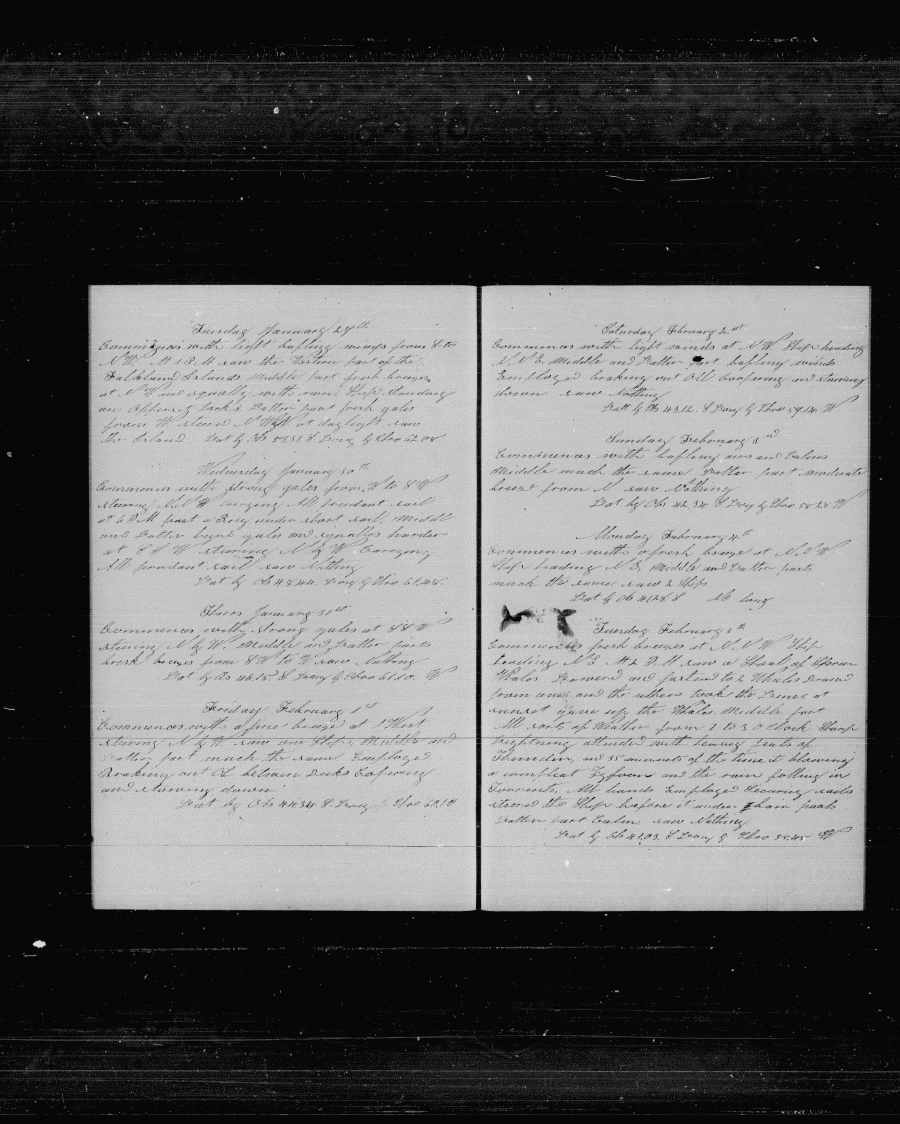 Tuesday January 29th
Commences with light bafling wings from S to
N.W. At 1 P.M. saw the Eastern part of the
Falkland Islands Middle part fresh breezes
at N W and squally with rain Ship standing
on Opposity tacks Latter part fresh gales
from W steerd N at daylight saw
the Island Lat by Obs 51.31 S Long by Chro 62.08
Wednesday January 30th
Commences with strong gales from W to S W
stearing N.N.W carrying All prudant sail
at 6 P.M past a Brig under short sail. Middle
and Latter begins gales and squalls harder
at S S W stearing N by W Carrying
All prudant sail saw Nothing
Lat by Ob 48.44 Long by Chro 61.48
Thurs January 31st
Commences with strong gales at S S W
stearing N by W. Middle and Latter parts
brisk breezes from S W to W saw Nothing
Lat by Os 46.15 S Long by Chro 61.10 W
Friday February 1st
Commences with a fine breeze at West
stearing N by W. saw one Ship, Middle and
Latter part much the same Employed
Braking out Oil between Decks Coopering
and stowing down
Lat by Obs 44.34 S Long by Chro 60.10
Saturday February 2st
Commences with light winds at N W Ship heading
N.N.E. Middle and Latter part bafling winds
Employed braking out Oil coopering and stowing
down saw Nothing
Latt by Ob 43.12 S Long by Chro 59.14 W
Sunday February 3rd
Commences with bafling airs and Calms
Middle much the same Latter part moderate
breese from N saw Nothing
Lat by Obs 42.34 S Long by Chro 58.28 W
Monday February 4th
Commences with a fresh breeze at N.N.W.
Ship heading N E, Middle and Latter parts
much the same saw 2 Ships
Lat by Ob 41.28 S No long
Tuesday February 5th
Commences fresh breezes at N.N.W. Ship
heading N E At 2 P.M saw a Shoal of Sperm
Whales Lowerd and fastend to 2 Whales Drawd
from one and the other took the Lines at
sunset gave up the Whales Middle part
All sorts of Weather from 1 to 3 O clock Sharp
Lightning attended with heavy peals of
Thunder, and 35 minnets of the time it blowing
a compleat Tyfoon and the rain falling in
Torrents, All hands Employed securing sails
steerd the Ship before it under bare pools
Latter part Calm saw Nothing
Lat by Ob 41.03 S Long by Chro 55.45 W